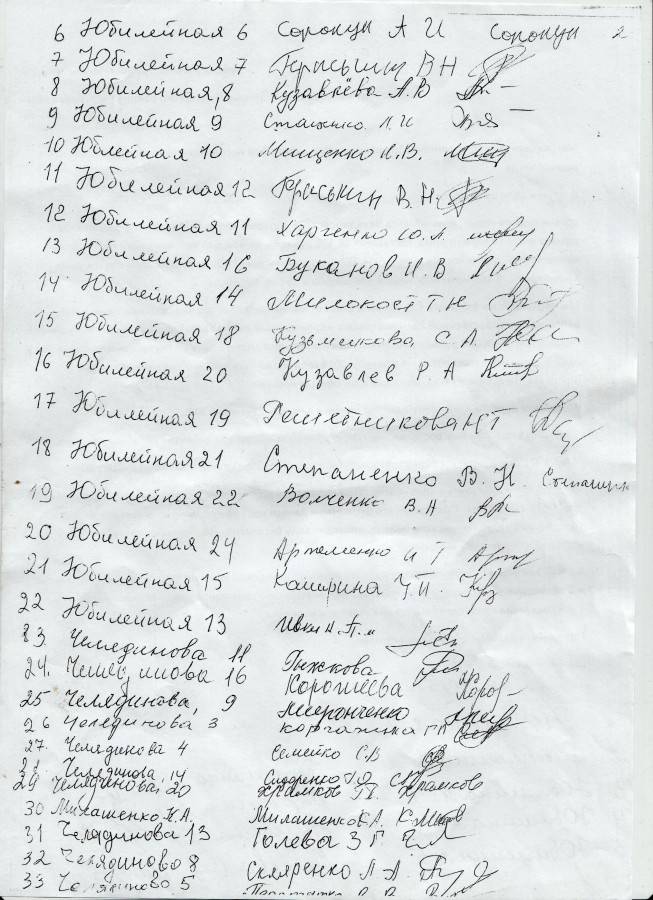 6 Юбилейная 6 Сорокун А И Сорокун 2
7 Юбилейная 7 Гераськин В Н
8 Юбилейная, 8 Кузавлёва Л.В
9 Юбилейная 9
10 Юбилейная 10 Мищенко И.В.
11 Юбилейная 12 Гераськин В.Н.
12 Юбилейная 11 Харченко Ю.А.
13 Юбилейная 16 Буканов И.В
14 Юбилейная 14 Милокост Т.Н
15 Юбилейная 18 Кузьменкова С.А.
16 Юбилейная 20 Кузавлев Р.А
17 Юбилейная 19 Решетникова Н Т
18 Юбилейная 21 Степаненко В.Н.
19 Юбилейная 22 Волченко В.Н
20 Юбилейная 24 Артеменко И Т
21 Юбилейная 15 Каширина
22 Юбилейная 13
23. Челядинова 11 Рыжкова
24. Челядинова 16 Корощева
25 Челядинова, 9 Миронченко
26 Челядинова 3
27. Челядинова 4 Семейко С.В
28 Челядинова, 14 Сидоренко
29 Челядинова 20 Храмков Храмков
30 Милашенко Н.А. Милашенко К.А.
31 Челядинова 13 Голева З Г
32 Челядиново 8 Скляренко Л А
33 Челядиново 5